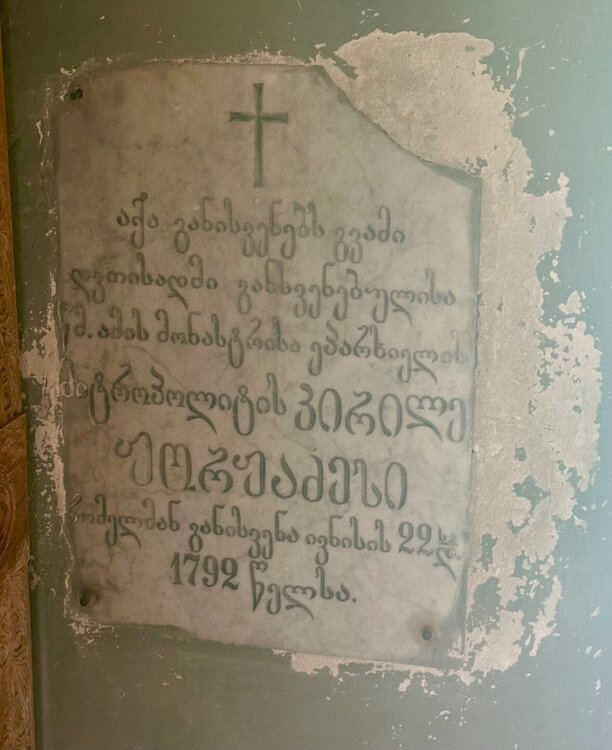 აქა განისვენებს გვამი
ღვთისადმი განსვენებულისა
წმ. ამის მონასტრისა ეპარხიელის
მიტროპოლიტის კირილე
ჟორჟაძესი
რომელმან განისვენა ივნისის 22 დ
1792 წელსა.